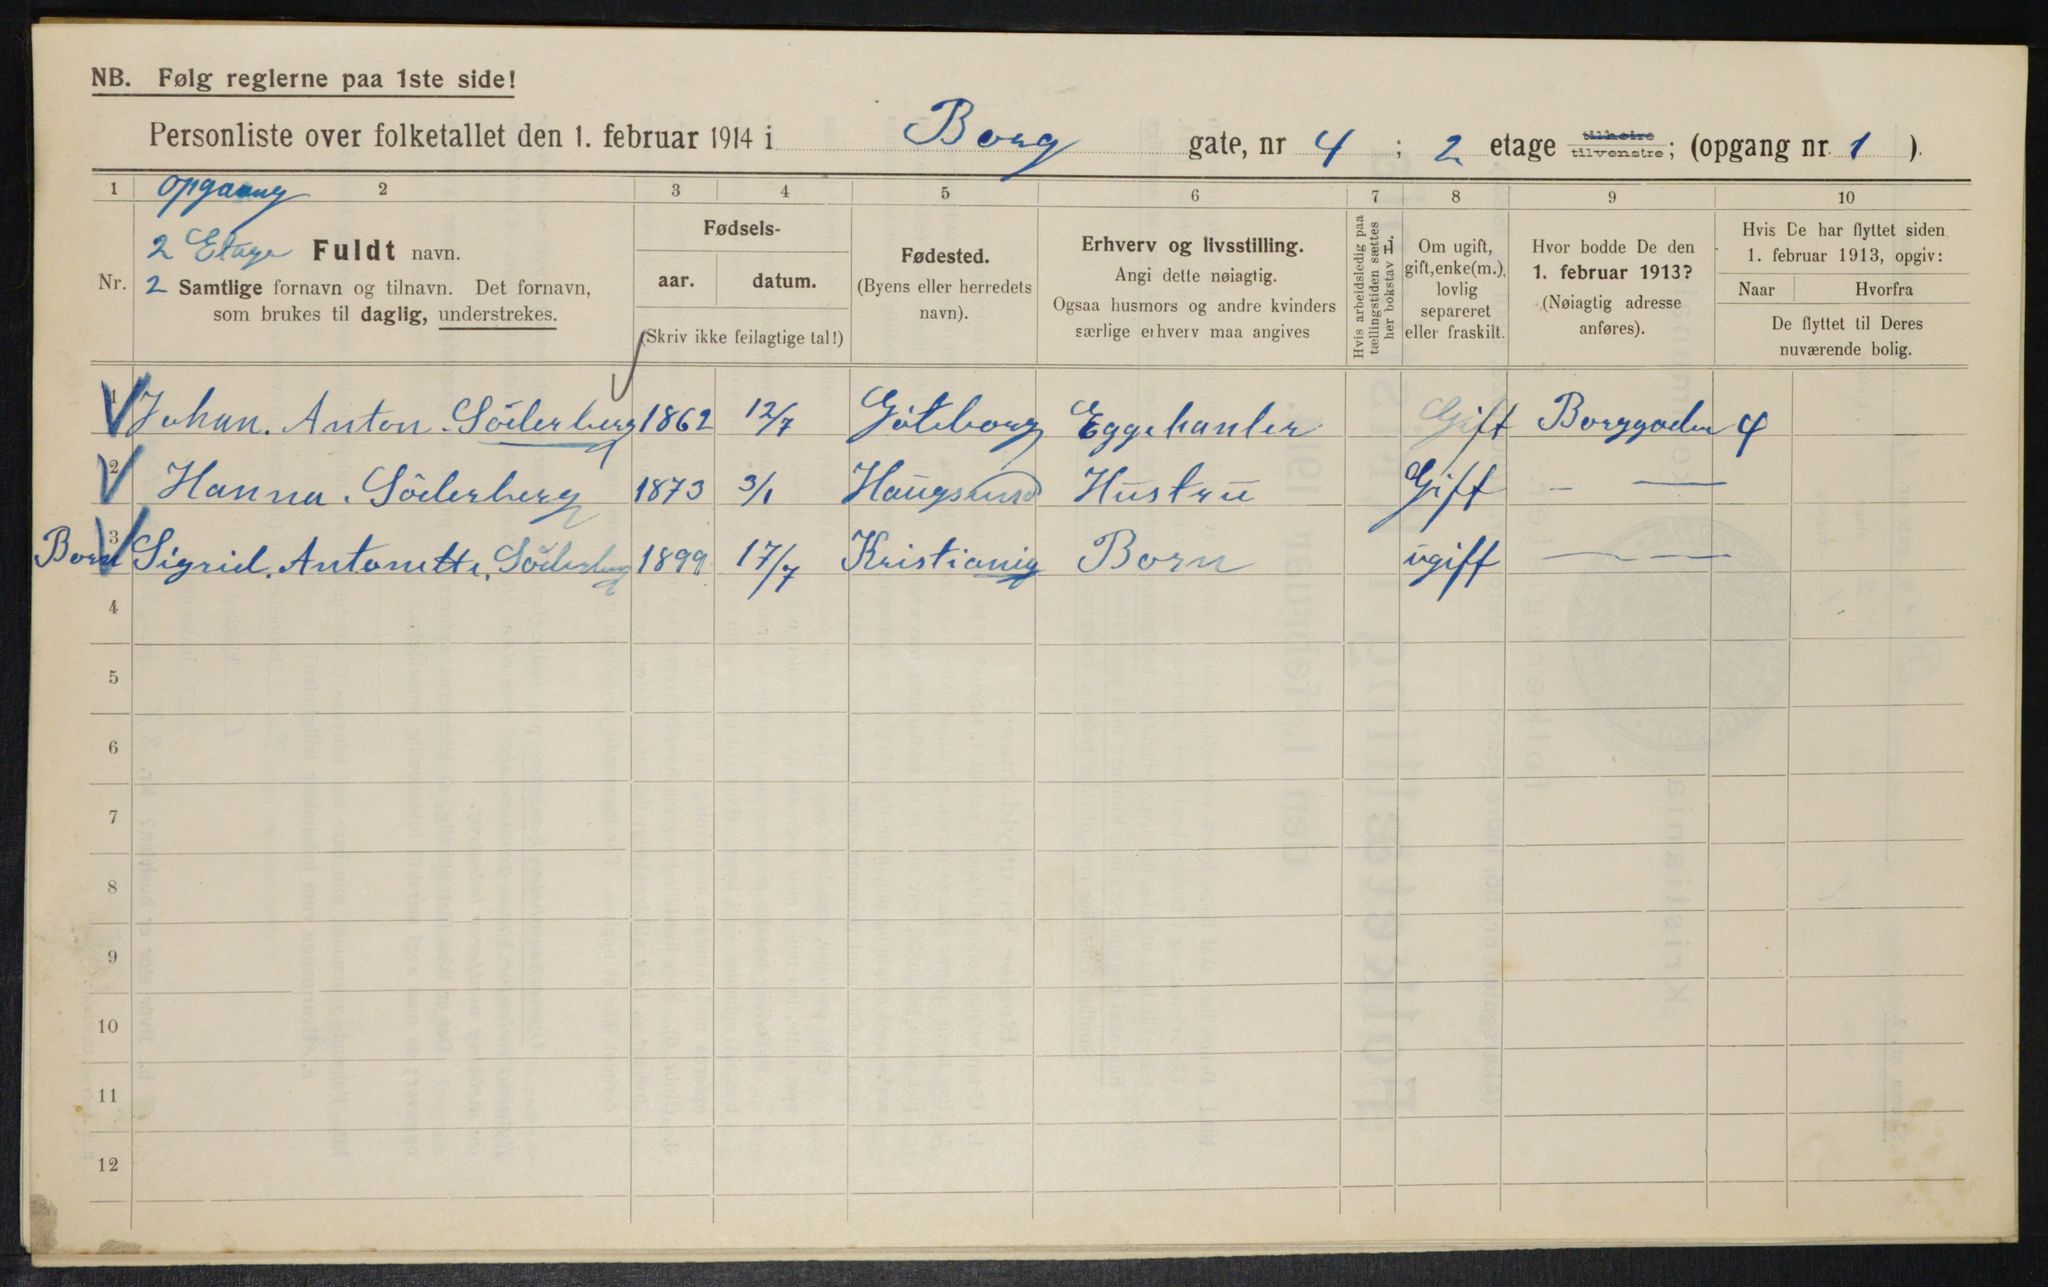 NB. Følg reglerne paa 1ste side!
Personliste over folketallet den 1. februar 1914 i Borg gate, nr 4 ; 2 etage tilhøire tilvenstre; (opgang nr. 1 ).
1 opgaang 2 3 4 5 6 7 8 9 10
Nr.
2 Etage Fuldt navn.
2 Samtlige fornavn og tilnavn. Det fornavn,
som brukes til daglig, understrekes.
Fødsels-
aar. datum.
(Skriv ikke feilagtige tal!)
Fødested.
(Byens eller herredets
navn).
Erhverv og livsstilling.
Angi dette nøiagtig.
Ogsaa husmors og andre kvinders
særlige erhverv maa angives
Hvis arbeidsledig paa
tællingstiden sættes
her bokstav L.
Om ugift,
gift, enke(m.),
lovlig
separeret
eller fraskilt.
Hvor bodde De den
1. februar 1913?
(Nøiagtig adresse
anføres).
Hvis De har flyttet siden
1. februar 1913, opgiv:
Naar Hvorfra
De flyttet til Deres
nuværende bolig.
1 Johan. Anton. Söderberg 1862 12/7 Göteborg Eggehanler Gift Borggaden 4
2 Hanna. Söderberg 1873 3/1 Haugsund Hustru Gift - —
Born 3 Sigrid. Antonette. Söderberg 1899 17/7 Kristiania Born ugift — —
4
5
6
7
8
9
10
11
12